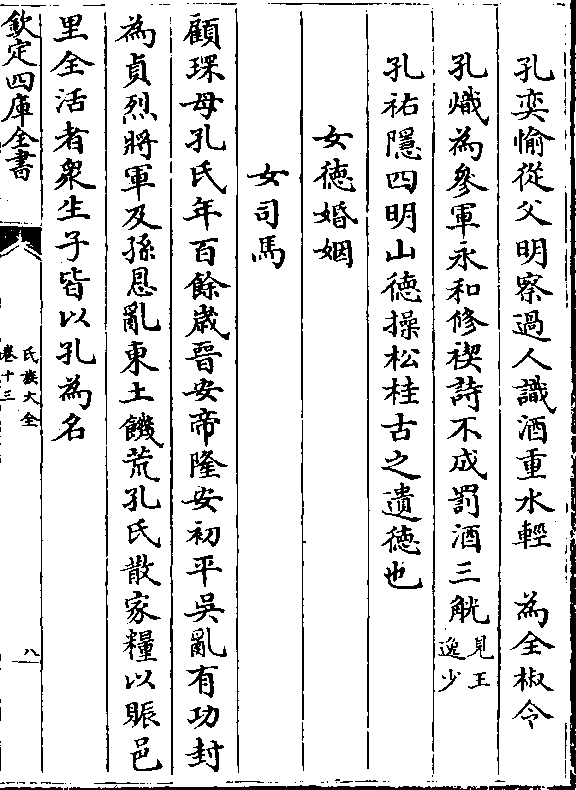 孔奕愉從父明察過人識酒重水輕　為全椒令
孔熾為參軍永和修禊詩不成罰酒三觥見王逸少
孔祐隱四明山德操松桂古之遺德也
女德婚姻
女司馬
顧琛母孔氏年百餘歲晉安帝隆安初平吳亂有功封
為貞烈將軍及孫恩亂東土饑荒孔氏散家糧以賑邑
里全活者衆生子皆以孔為名
欽定四庫全書
氏族大全
卷十三
八